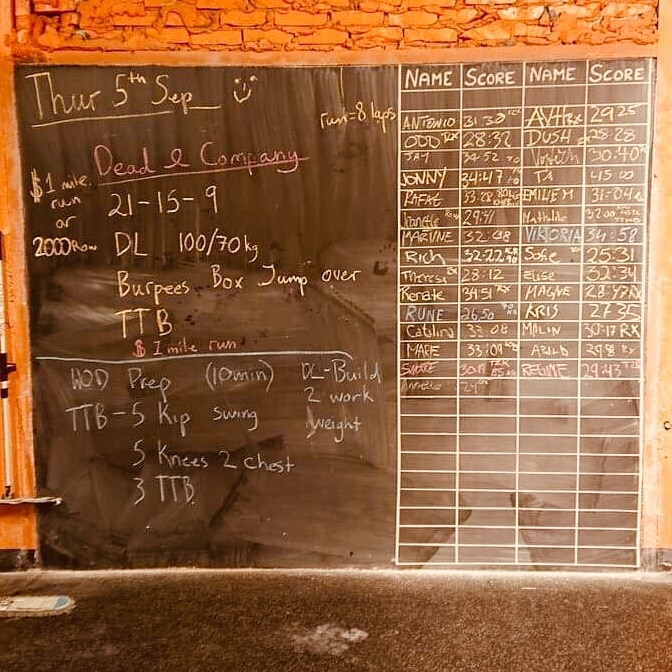 Thur 5th Sep
run=8 laps
Dead & Company
$ 1 mile run or 2000 Row
21-15-9
DL 100/70kg
Burpees Box Jump over
TTB
$ 1 mile run
WOD Prep (10min)
TTB - 5 Kip swing
5 Knees 2 chest
3 TTB
DL-Build
2 work
weight
NAME SCORE NAME SCORE
ANTONIO 31:30 2925
ODD RX 28:32 DUSH 28:28
JAY 34:52 30:40
JONNY 34:47 TA 45:00
RAFAL 33:28 EMILIE M 31-04
29:41 Mathilde 3200
MARTINE 32:08 VIKTORIA 34:58
Rich 32:22 Sofie 25:31
Therese 28:12 Elise 32:34
Renate 34:51 RX MAGNE 28:47 RX
RUNE 26:50 KRIS 27:35
Catalina 33:08 MALIN 30:17 RX
MARE 33:09 ARILD
30:19 REGINE 29:43